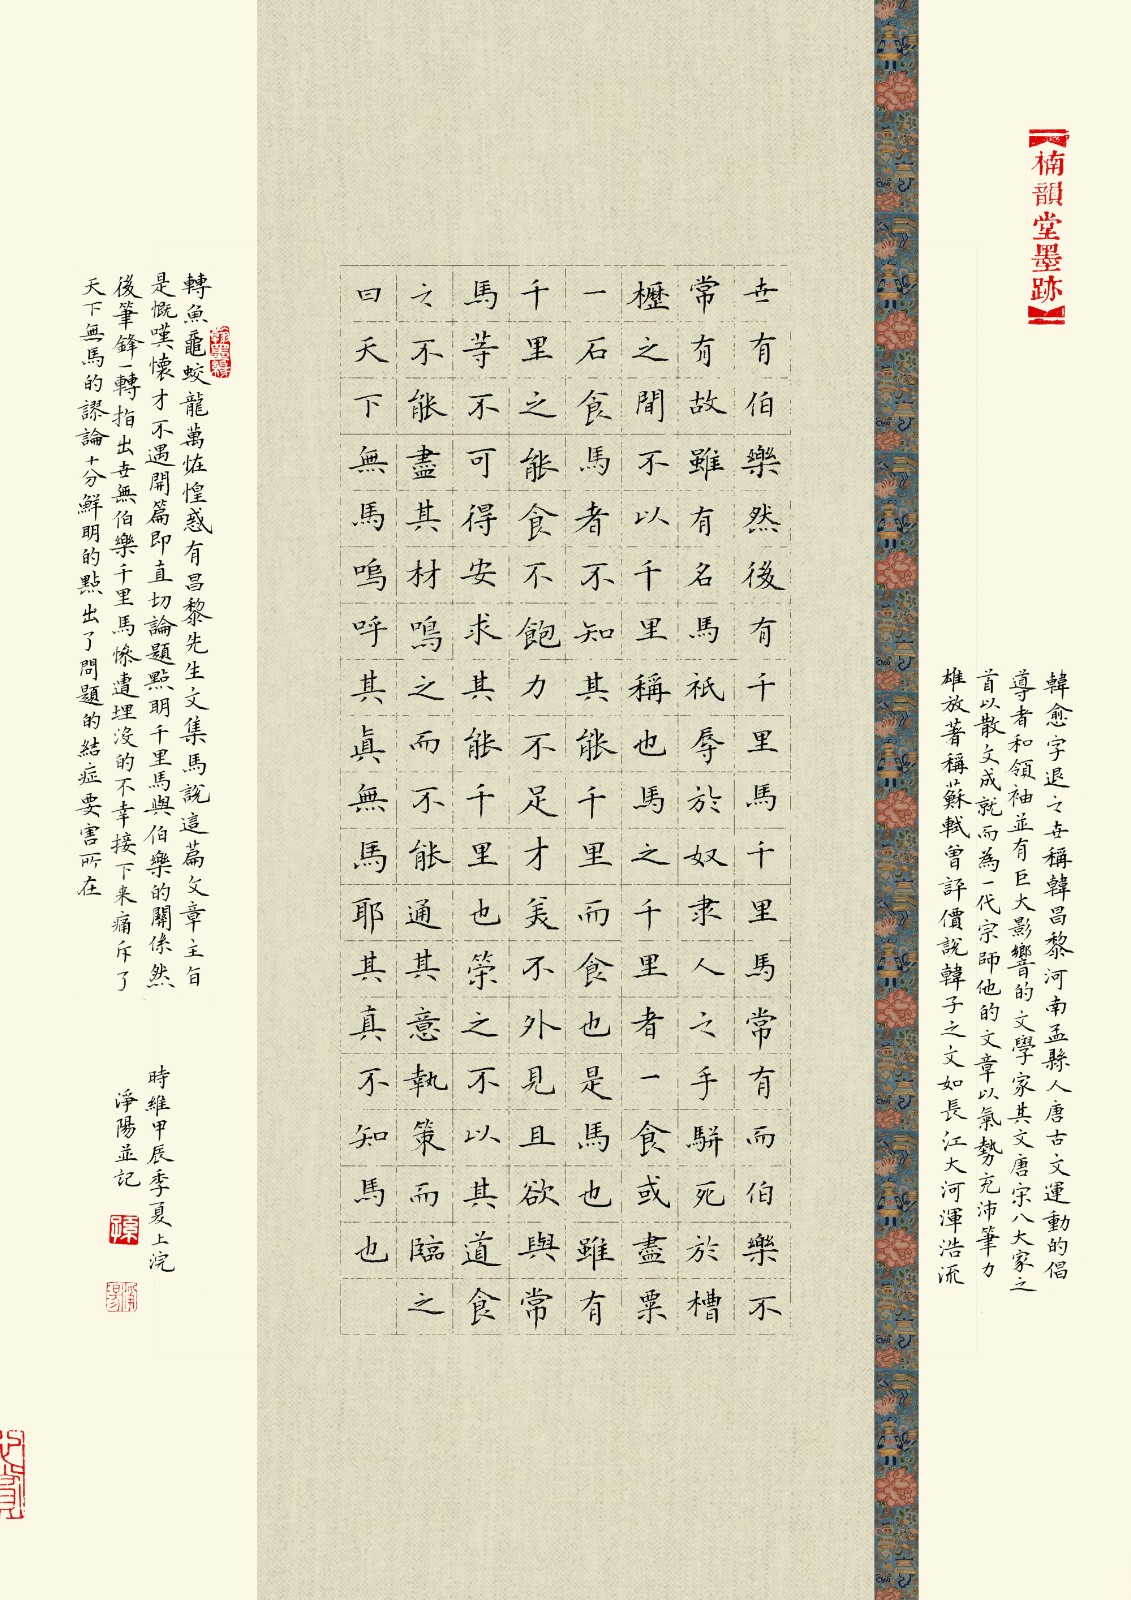 楠韻堂墨跡
韓愈字退之世稱韓昌黎河南孟縣人唐古文運動的倡
導者和領袖並有巨大影響的文學家其文唐宋八大家之
首以散文成就而為一代宗師他的文章以氣勢充沛筆力
雄放著稱蘇軾曾評價說韓子之文如長江大河渾浩流
世有伯樂然後有千里馬千里馬常有而伯樂不
常有故雖有名馬祇辱於奴隶人之手駢死於槽
櫪之間不以千里稱也馬之千里者一食或盡粟
一石食馬者不知其能千里而食也是馬也雖有
千里之能食不飽力不足才美不外見且欲與常
馬等不可得安求其能千里也策之不以其道食
之不能盡其材鳴之而不能通其意執策而臨之
曰天下無馬嗚呼其眞無馬耶其真不知馬也
轉魚黿蛟龍萬怪惶惑有昌黎先生文集馬說這篇文章主旨
是慨嘆懷才不遇開篇即直切論題點明千里馬與伯樂的關係然
後筆鋒一轉指出世無伯樂千里馬慘遭埋沒的不幸接下来痛斥了
天下無馬的謬論十分鮮明的點出了問題的結症要害所在
時維甲辰季夏上浣
淨陽並記